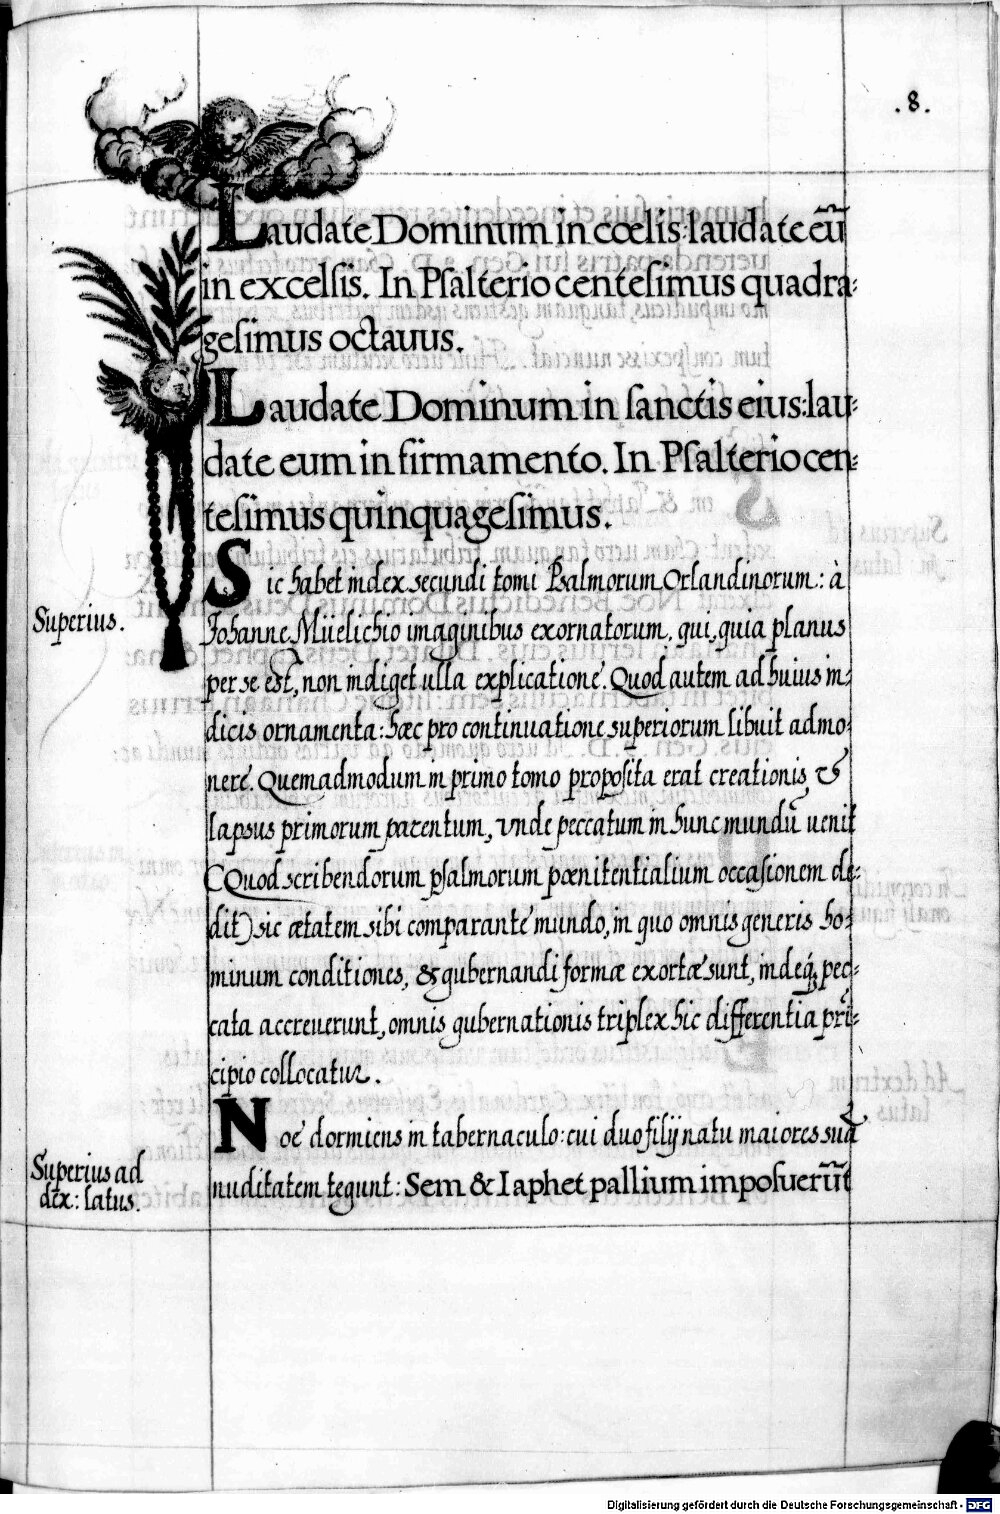 .8.
Laudate Dominum in cœlis: laudate eū
in excelsis. In Psalterio centesimus quadra-
gesimus octauus.
Laudate Dominum in sanctis eius: lau-
date eum in firmamento. In Psalterio cen-
tesimus quinquagesimus.
Superius.
Sic habet index secundi tomi Psalmorum Orlandinorum: à
Johanne Müelichio imaginibus exornatorum, qui, quia planus
per se est, non indiget ulla explicatione. Quod autem ad huius in-
dicis ornamenta: hæc pro continuatione superiorum libuit admo-
nere. Quemadmodum in primo tomo proposita erat creationis, &
lapsus primorum parentum, vnde peccatum in hunc mundū uenit
(Quod scribendorum psalmorum pœnitentialium occasionem de-
dit) sic ætatem sibi comparante mundo, in quo omnis generis ho-
minum conditiones, & gubernandi formæ exortæ sunt, indeq́ pec-
cata accreuerunt, omnis gubernationis triplex hic differentia prī-
cipio collocatur.
Superius ad
dex: latus.
Noe dormiens in tabernaculo: cui duo filij natu maiores sua
nuditatem tegunt: Sem & Iaphet pallium imposuerūt
Digitalisierung gefördert durch die Deutsche Forschungsgemeinschaft - DFG